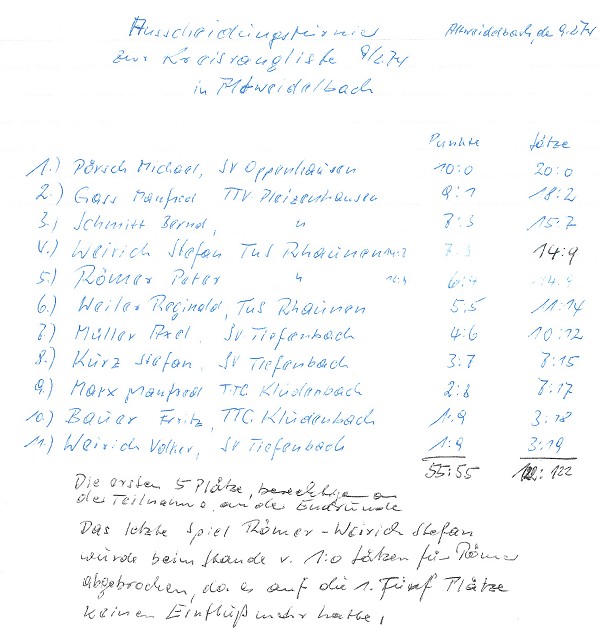 Ausscheidungsturnier
zur Kreisrangliste 9/274
in Altweidelbach
Altweidelbach, de 9.2.74
Punkte Sätze
1.) Pörsch Michael, SV Oppenhausen 10:0 20:0
2.) Gass Manfred TTV Pleizenhausen 9:1 18:2
3.) Schmitt Bernd, " 7:3 15:7
4.) Weirich Stefan TuS Rhaunen 7:3 14:9
5.) Römer Peter " 6:4
6.) Weiler Reginald, TuS Rhaunen 5:5 11:14
7.) Müller Axel, SV Tiefenbach 4:6 10:12
8.) Kurz Stefan, SV Tiefenbach 3:7 8:15
9.) Marx Manfred TTC Kludenbach 2:8 8:17
10.) Bauer Fritz, TTC Kludenbach 1:9 3:18
11.) Weirich Volker, SV Tiefenbach 1:9 3:19
55:55 122
Die ersten 5 Plätze, berechtigen
die Teilnahme an die Endrunde
Das letzte Spiel Römer - Weirich Stefan
wurde beim Stande v. 1:0 Sätzen für Römer
abgebrochen, da es auf die 1. Fünf Plätze
keinen Einfluß mehr hatte,